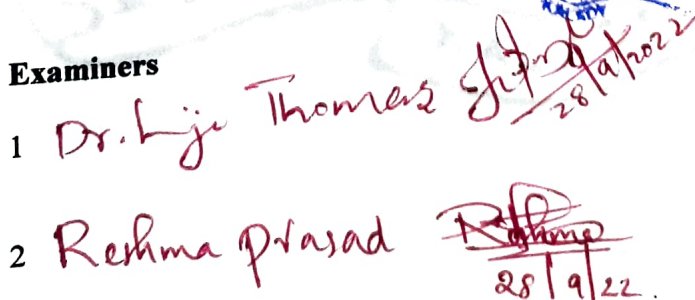 Examiners
1 Dr. Liji Thomas 28/9/2022
2 Reshma Prasad Reshma
28/9/22.